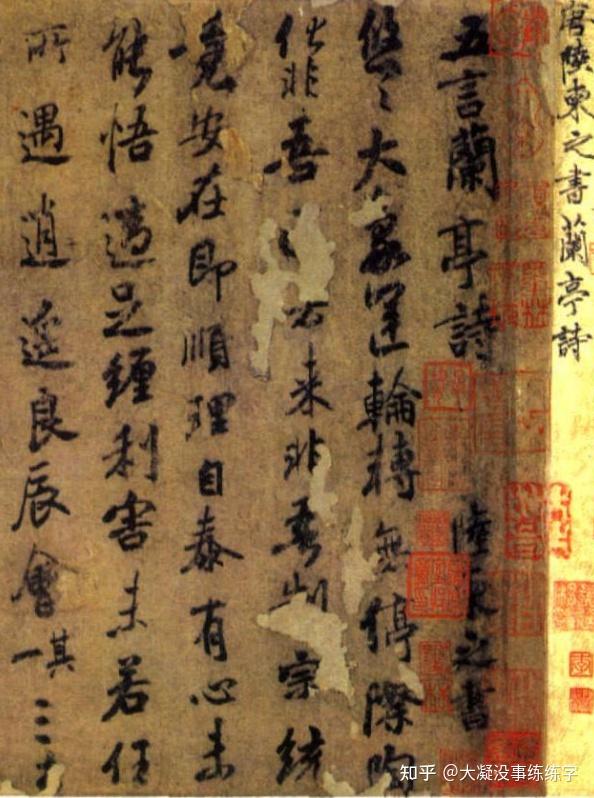 唐陸柬之書蘭亭詩
五言蘭亭詩 陸柬之書
悠々大象運輪轉無停際陶
化非吾去来非吾制宗統
竟安在即順理自泰有心未
能悟適足纏利害未若任
所遇逍遥良辰會 其一 三
知乎 @大凝没事练练字